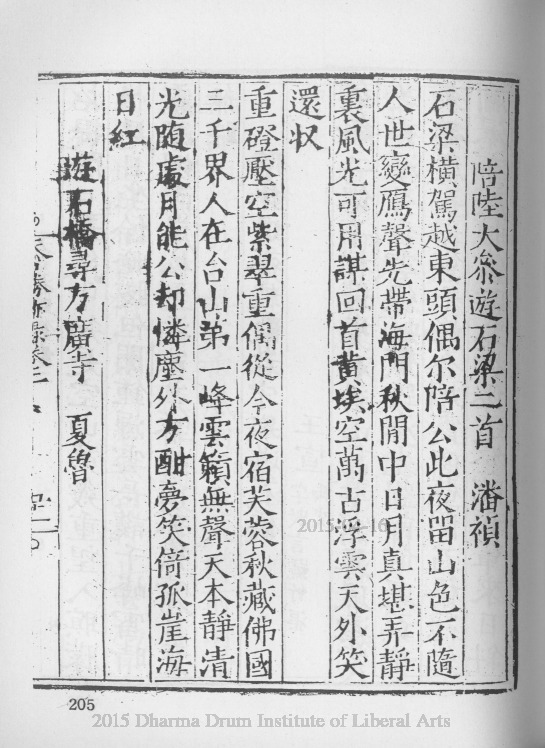 陪陸大叅遊石梁二首　潘禎
石梁橫駕越東頭偶尔陪公此夜畱山色不隨
人世變鴈聲先帶海門秋閒中日月真堪弄靜
裏風光可用謀回首黃埃空萬古浮雲天外笑
還収
重磴壓空紫翠重偶從今夜宿芙蓉秋藏佛國
三千界人在台山第一峰雲籟無聲天本靜清
光随處月能公却憐塵外方酣夢笑倚孤崖海
日紅
遊石橋尋方廣寺　夏鍭
天台勝跡錄卷二
205
2015 Dharma Drum Institute of Liberal Arts